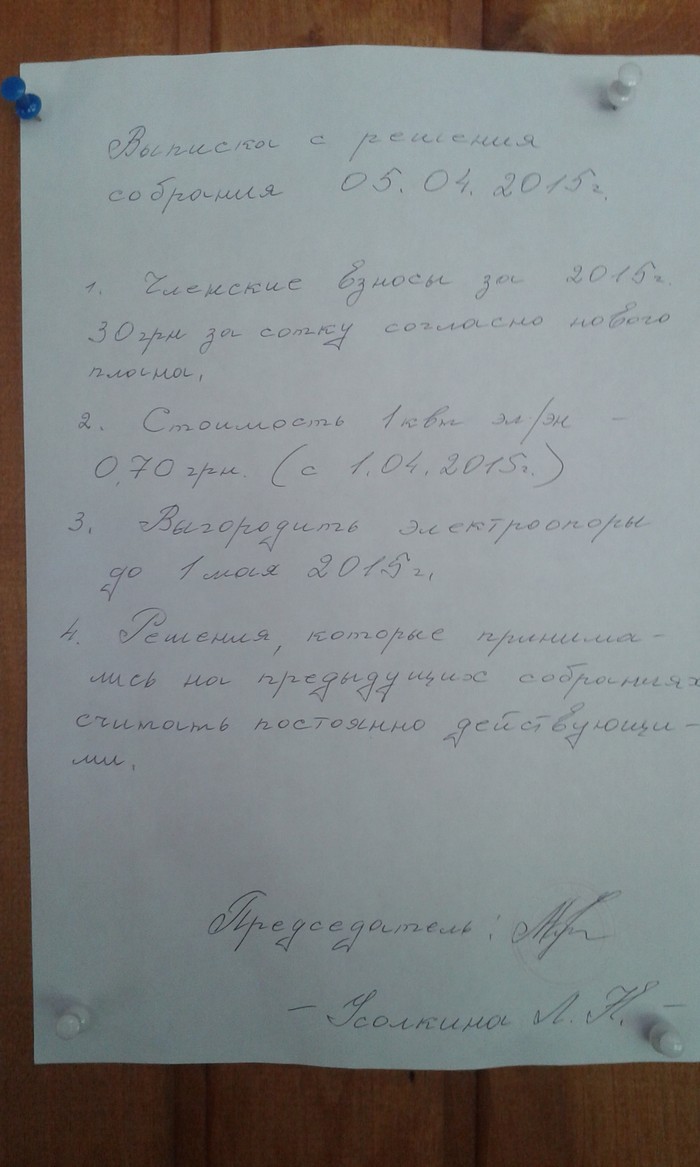 Выписка с решения
собрания 05.04.2015г.
1. Членские взносы за 2015г.
30грн за сотку согласно нового
плана.
2. Стоимость 1квт эл/эн –
0,70грн. (с 1.04.2015г.)
3. Выгородить электроопоры
до 1 мая 2015г.
4. Решения, которые принима-
лись на предыдущих собраниях
считать постоянно действующи-
ми.
Председатель:
– Усолкина Л.Н. –